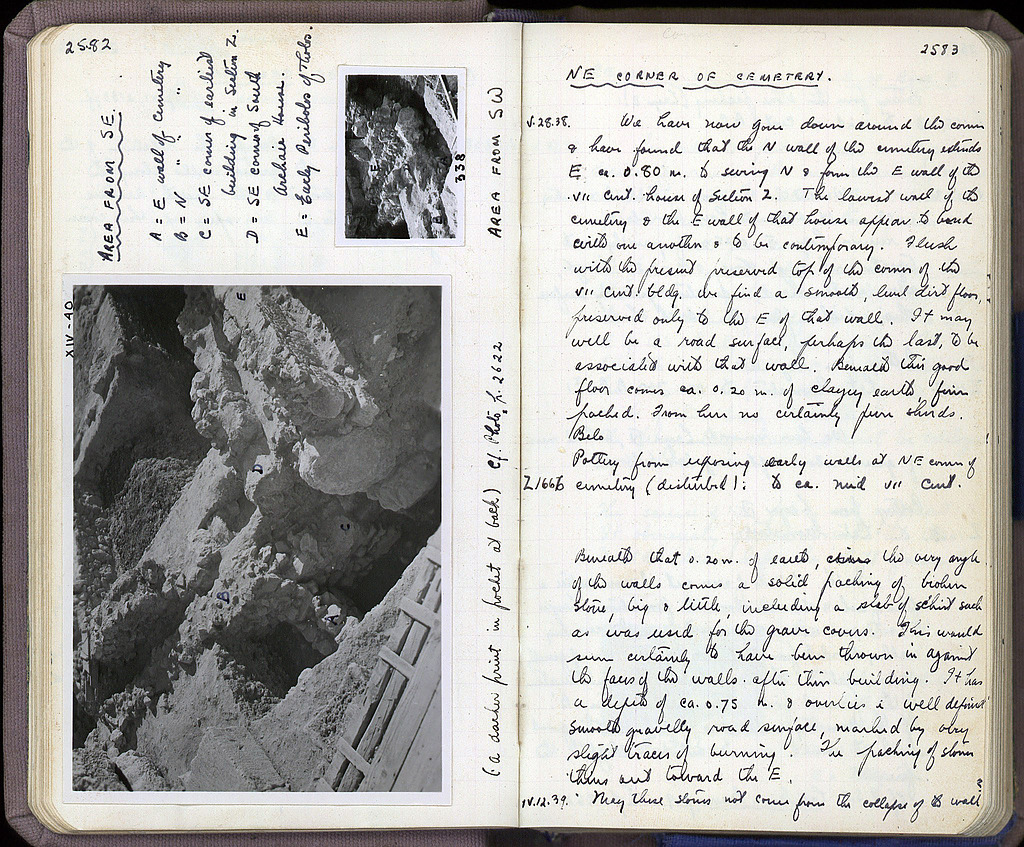 2582
AREA FROM SE.
A = E wall of Cemetery
B = N " " "
C = SE corner of earliest
building in Section Z.
D = SE corner of South
Archaic House.
E = Early Peribolos of Tholos.
E
338
B
AREA FROM SW
XIV-40
E
D
C
B
A
(a darker print in pocket at back) Cf. Photo, p. 2622
2583
NE CORNER OF CEMETERY.
V.28.38. We have now gone down around the corner
& have found that the N wall of the cemetery extends
E ca. 0.80 m. to swing N & form the E wall of the
VII cent. house of Section Z. The lowest wall of the
cemetery & the E wall of that house appear to bond
with one another & to be contemporary. Flush
with the present preserved top of the corner of the
VII cent. bldg. we find a smooth, level dirt floor,
preserved only to the E of that wall. It may
well be a road surface, perhaps the last, to be
associated with that wall. Beneath this good
floor comes ca. 0.20 m. of clayey earth, firm
packed. From here no certainly pure sherds.
Belo
Pottery from exposing early walls at NE corner of
Z1666 cemetery (disturbed): to ca. mid VII cent.
Beneath that 0.20 m. of earth, the very angle
of the walls comes a solid packing of broken
stone, big & little, including a slab of schist such
as was used for the grave covers. This would
seem certainly to have been thrown in against
the faces of the walls after their building. It has
a depth of ca. 0.75 m. & overlies a well defined
smooth gravelly road surface, marked by very
slight traces of burning. The packing of stones
thins out toward the E.
IV.12.39. May these stones not come from the collapse of the wall?